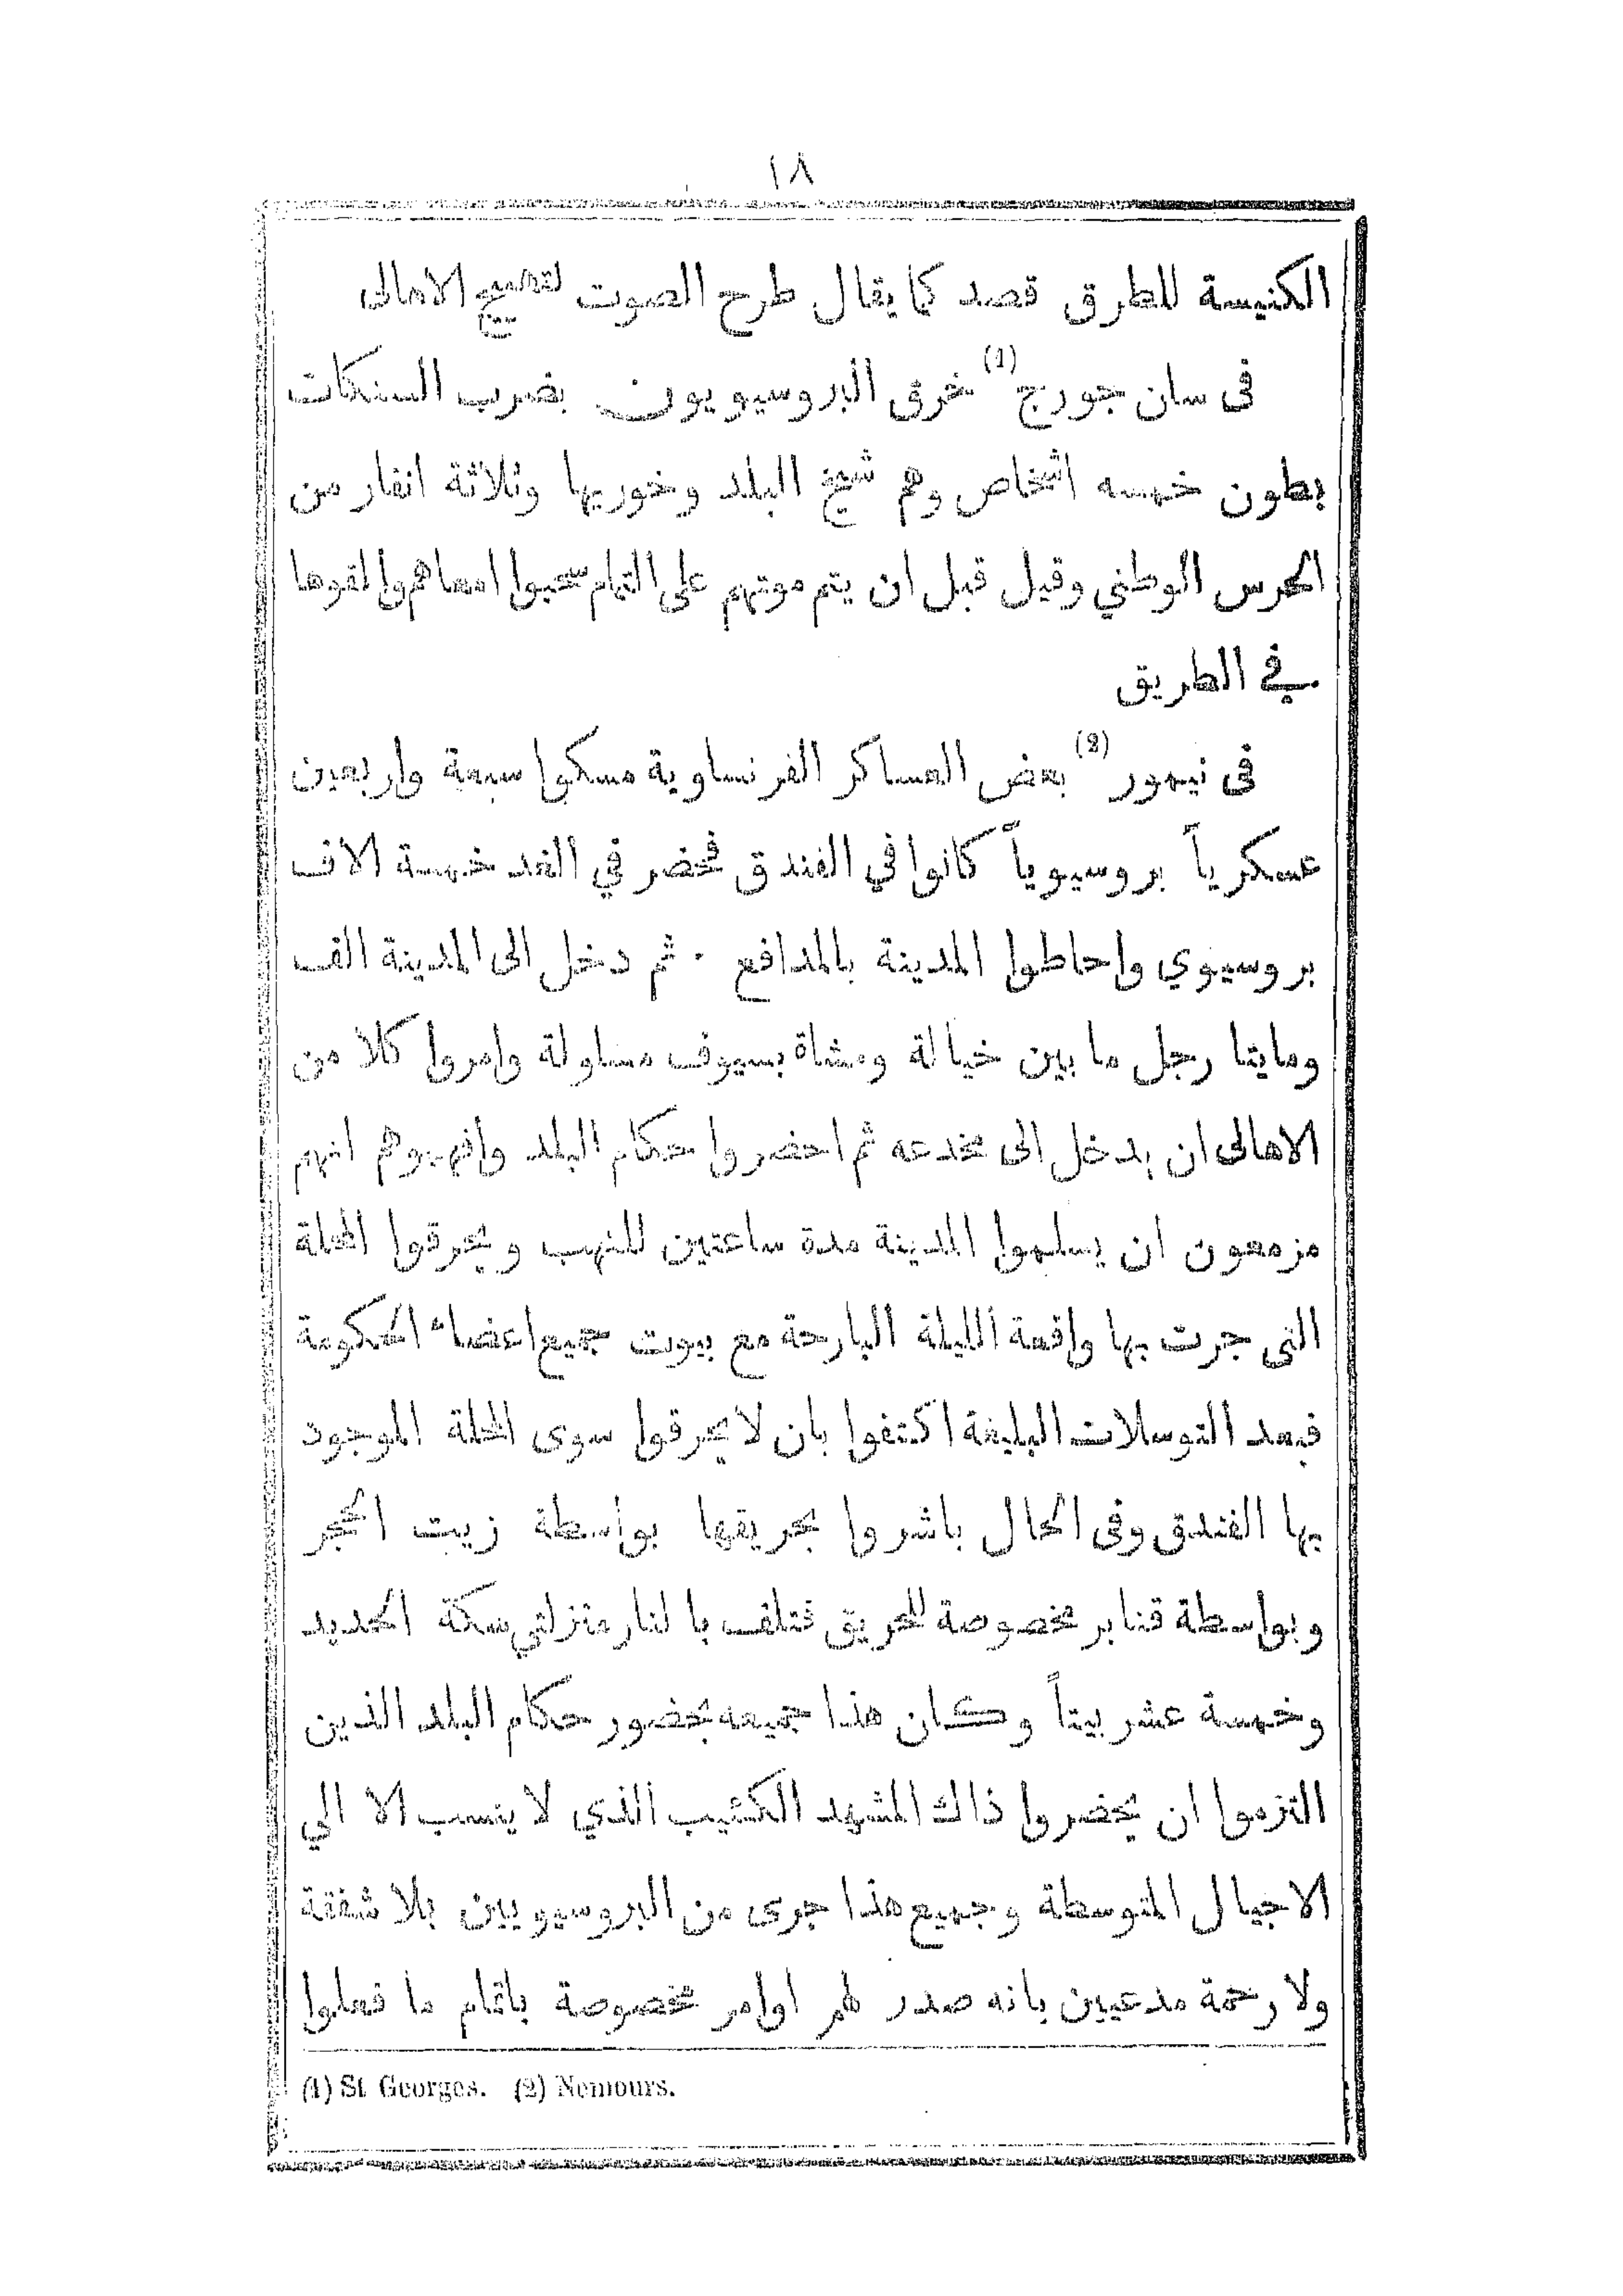 ١٨
الكنيسة للطرق قصد كما يقال طرح الصوت لتهييج الاهالى
فى سان جورج (1) خرق البروسيويون بضرب السنكات
بطون خمسه اشخاص وهم شيخ البلد وخوريها وثلاثة انفار من
الحرس الوطني وقيل قبل ان يتم موتهم على التمام سحبوا امعاهم والقوها
في الطريق
فى نيمور (2) بعض العساكر الفرنساوية مسكوا سبعة واربعين
عسكرياً بروسيوياً كانوا في الفندق فحضر في الغد خمسة الاف
بروسيوي واحاطوا المدينة بالمدافع · ثم دخل الى المدينة الف
ومايتا رجل ما بين خيالة ومشاة بسيوف مسلولة وامروا كلا من
الاهالى ان يدخل الى مخدعه ثم احضروا حكام البلد وافهموهم انهم
مزمعون ان يسلموا المدينة مدة ساعتين للنهب ويحرقوا المحلة
التى جرت بها واقعة الليلة البارحة مع بيوت جميع اعضاء الحكومة
فبعد التوسلات البليغة اكتفوا بان لا يحرقوا سوى المحلة الموجود
بها الفندق وفى الحال باشروا بحريقها بواسطة زيت الحجر
وبواسطة قنابر مخصوصة للحريق فتلف با لنار منزلتي سكة الحديد
وخمسة عشر بيتاً وكان هذا جميعه بحضور حكام البلد الذين
التزموا ان يحضروا ذاك المشهد الكئيب الذي لا ينسب الا الي
الاجيال المتوسطة وجميع هذا جرى من البروسيويين بلا شفقة
ولا رحمة مدعيين بانه صدر لهم اوامر مخصوصة باتمام ما فعلوا
(1) St Georges. (2) Nemours.